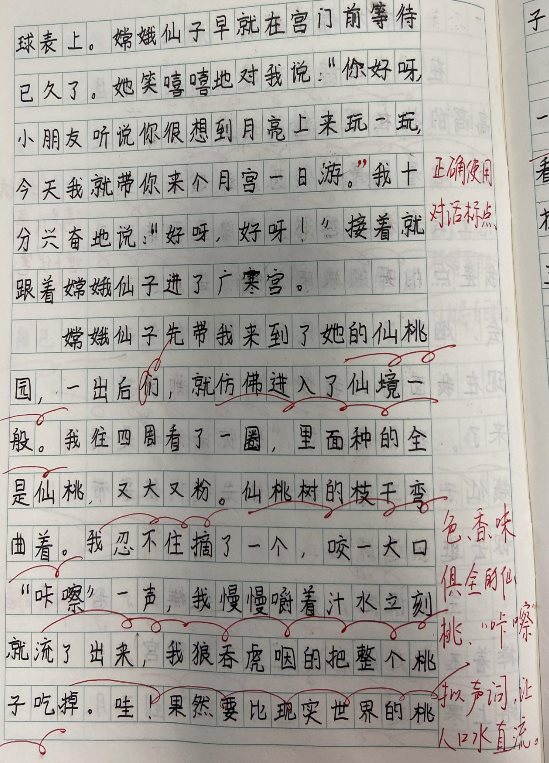 球表上。嫦娥仙子早就在宫门前等待
已久了。她笑嘻嘻地对我说:“你好呀,
小朋友听说你很想到月亮上来玩一玩,
今天我就带你来个月宫一日游。”我十
分兴奋地说:“好呀,好呀!”接着就
跟着嫦娥仙子进了广寒宫。
嫦娥仙子先带我来到了她的仙桃
园,一出后们,就仿佛进入了仙境一
般。我往四周看了一圈,里面种的全
是仙桃,又大又粉。仙桃树的枝干弯
曲着。我忍不住摘了一个,咬一大口
“咔嚓”一声,我慢慢嚼着汁水立刻
就流了出来,我狼吞虎咽的把整个桃
子吃掉。哇!果然要比现实世界的桃
正确使用
对话标点
色、香、味
俱全的仙
桃,“咔嚓”
拟声词,让
人口水直流。